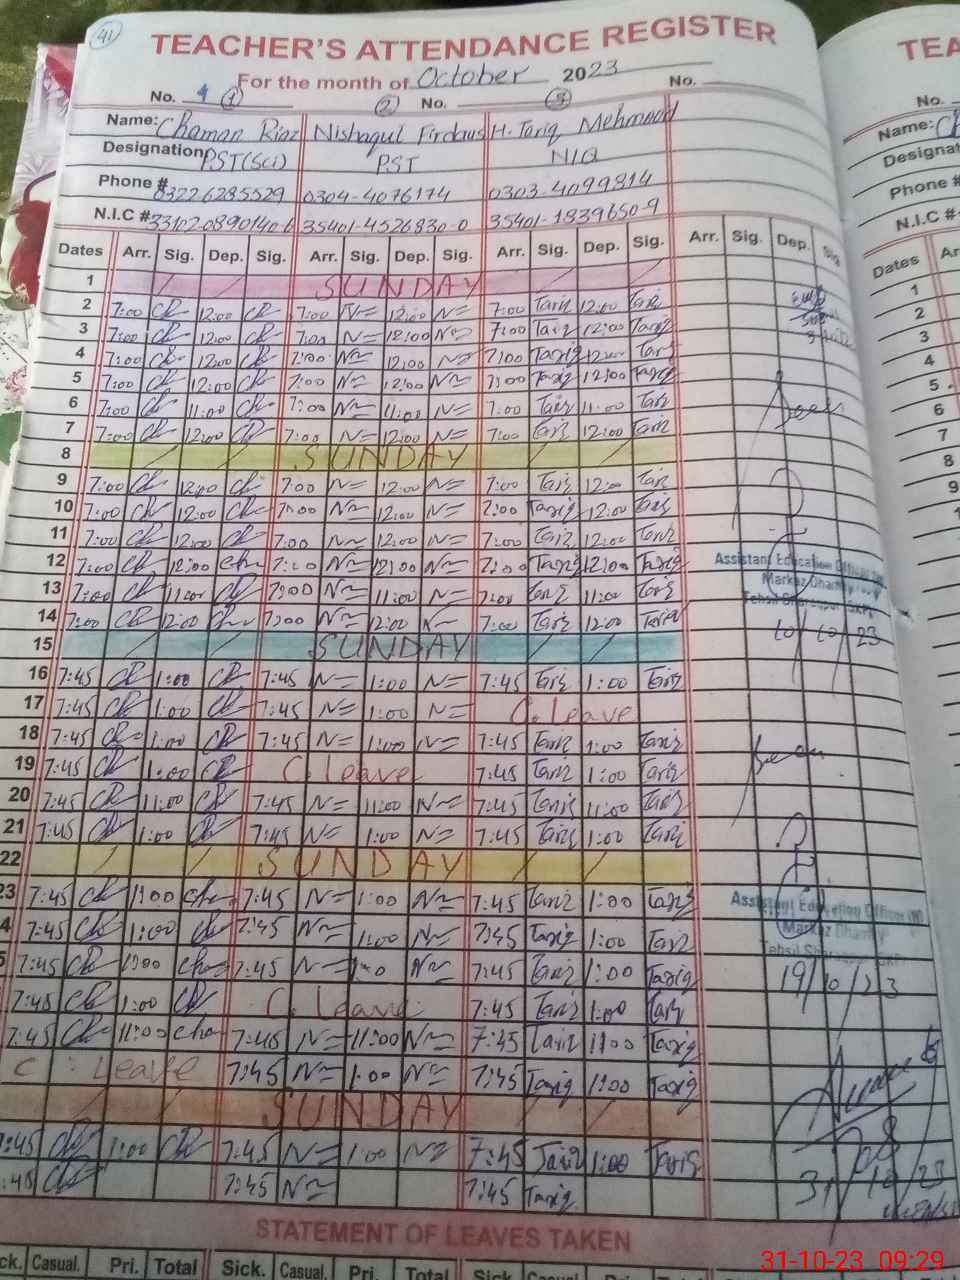 41
TEACHER'S ATTENDANCE REGISTER
For the month of October 2023
No. 1 ① ② No. ③ No.
Name: Chaman Riaz Nishaqul Firdaus H. Tariq Mehmood
Designation PST(Sci) PST NIQ
Phone # 03226285529 0304-4076174 0303-4099814
N.I.C # 35401-4526830-0 35401-1839650-9
Dates Arr. Sig. Dep. Sig. Arr. Sig. Dep. Sig. Arr. Sig. Dep. Sig. Arr. Sig. Dep. Sig
1 SUNDAY
2 7:00 Ch 12:00 Ch 7:00 N= 12:00 N= 7:00 Tariq 12:00 Tariq
3 7:00 Ch 12:00 Ch 7:00 N= 12:00 N= 7:00 Tariq 12:00 Tariq
4 7:00 Ch 12:00 Ch 7:00 N= 12:00 N= 7:00 Tariq 12:00 Tariq
5 7:00 Ch 12:00 Ch 7:00 N= 12:00 N= 7:00 Tariq 12:00 Tariq
6 7:00 Ch 11:00 Ch 7:00 N= 11:00 N= 7:00 Tariq 11:00 Tariq
7 7:00 Ch 12:00 Ch 7:00 N= 12:00 N= 7:00 Tariq 12:00 Tariq
8 SUNDAY
9 7:00 Ch 12:00 Ch 7:00 N= 12:00 N= 7:00 Tariq 12:00 Tariq
10 7:00 Ch 12:00 Ch 7:00 N= 12:00 N= 7:00 Tariq 12:00 Tariq
11 7:00 Ch 12:00 Ch 7:00 N= 12:00 N= 7:00 Tariq 12:00 Tariq
12 7:00 Ch 12:00 Cha 7:00 N= 12:00 N= 7:00 Tariq 12:00 Tariq
Assistant Education Officer
13 7:00 Ch 11:00 Ch 7:00 N= 11:00 N= 7:00 Tariq 11:00 Tariq
Markaz
14 7:00 Ch 12:00 Ch 7:00 N= 12:00 N= 7:00 Tariq 12:00 Tariq
Tehsil
15 SUNDAY
10/10/23
16 7:45 Ch 1:00 Ch 7:45 N= 1:00 N= 7:45 Tariq 1:00 Tariq
17 7:45 Ch 1:00 Ch 7:45 N= 1:00 N= C. leave
18 7:45 Ch 1:00 Ch 7:45 N= 1:00 N= 7:45 Tariq 1:00 Tariq
19 7:45 Ch 1:00 Ch C. leave 7:45 Tariq 1:00 Tariq
20 7:45 Ch 11:00 Ch 7:45 N= 11:00 N= 7:45 Tariq 11:00 Tariq
21 7:45 Ch 1:00 Ch 7:45 N= 1:00 N= 7:45 Tariq 1:00 Tariq
22 SUNDAY
23 7:45 Ch 1:00 Cha 7:45 N= 1:00 N= 7:45 Tariq 1:00 Tariq
Assistant Education Officer
4 7:45 Ch 1:00 Ch 7:45 N= 1:00 N= 7:45 Tariq 1:00 Tariq
Markaz
5 7:45 Ch 1:00 Cha 7:45 N= 1:00 N= 7:45 Tariq 1:00 Tariq
Tehsil
19/10/23
7:45 Ch 1:00 Ch C. leave 7:45 Tariq 1:00 Tariq
7:45 Ch 11:00 Cha 7:45 N= 11:00 N= 7:45 Tariq 11:00 Tariq
C. Leave 7:45 N= 1:00 N= 7:45 Tariq 1:00 Tariq
SUNDAY
7:45 Ch 1:00 Ch 7:45 N= 1:00 N= 7:45 Tariq 1:00 Tariq
:45 Ch 7:45 N= 7:45 Tariq
31/10/23
STATEMENT OF LEAVES TAKEN
ck. Casual. Pri. Total Sick. Casual. Pri. Total Sick Casual
TEA
No.
Name:
Designat
Phone #
N.I.C #
Dates Ar
1
2
3
4
5
6
7
8
9
31-10-23 09:29